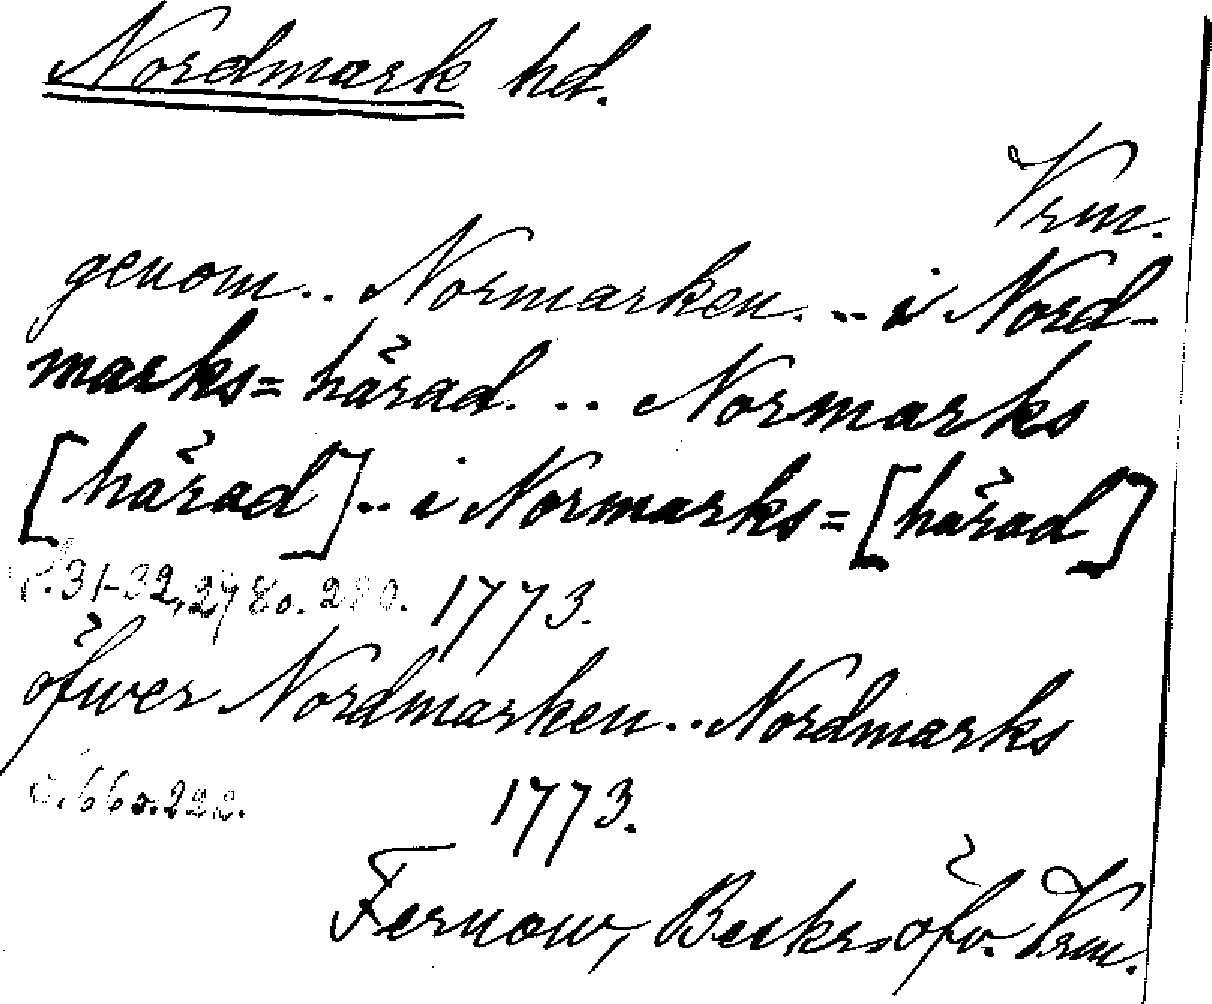 Nordmark hd.
Vrm.
genom .. Normarken. .. i Nord-
marks= härad. .. Normarks
[härad] .. i Normarks= [härad]
s. 31-32, 278 o. 280. 1773.
öfwer Nordmarken .. Nordmarks
s. 66 o. 222. 1773.
Fernow, Beskr. öfv. Vrm.